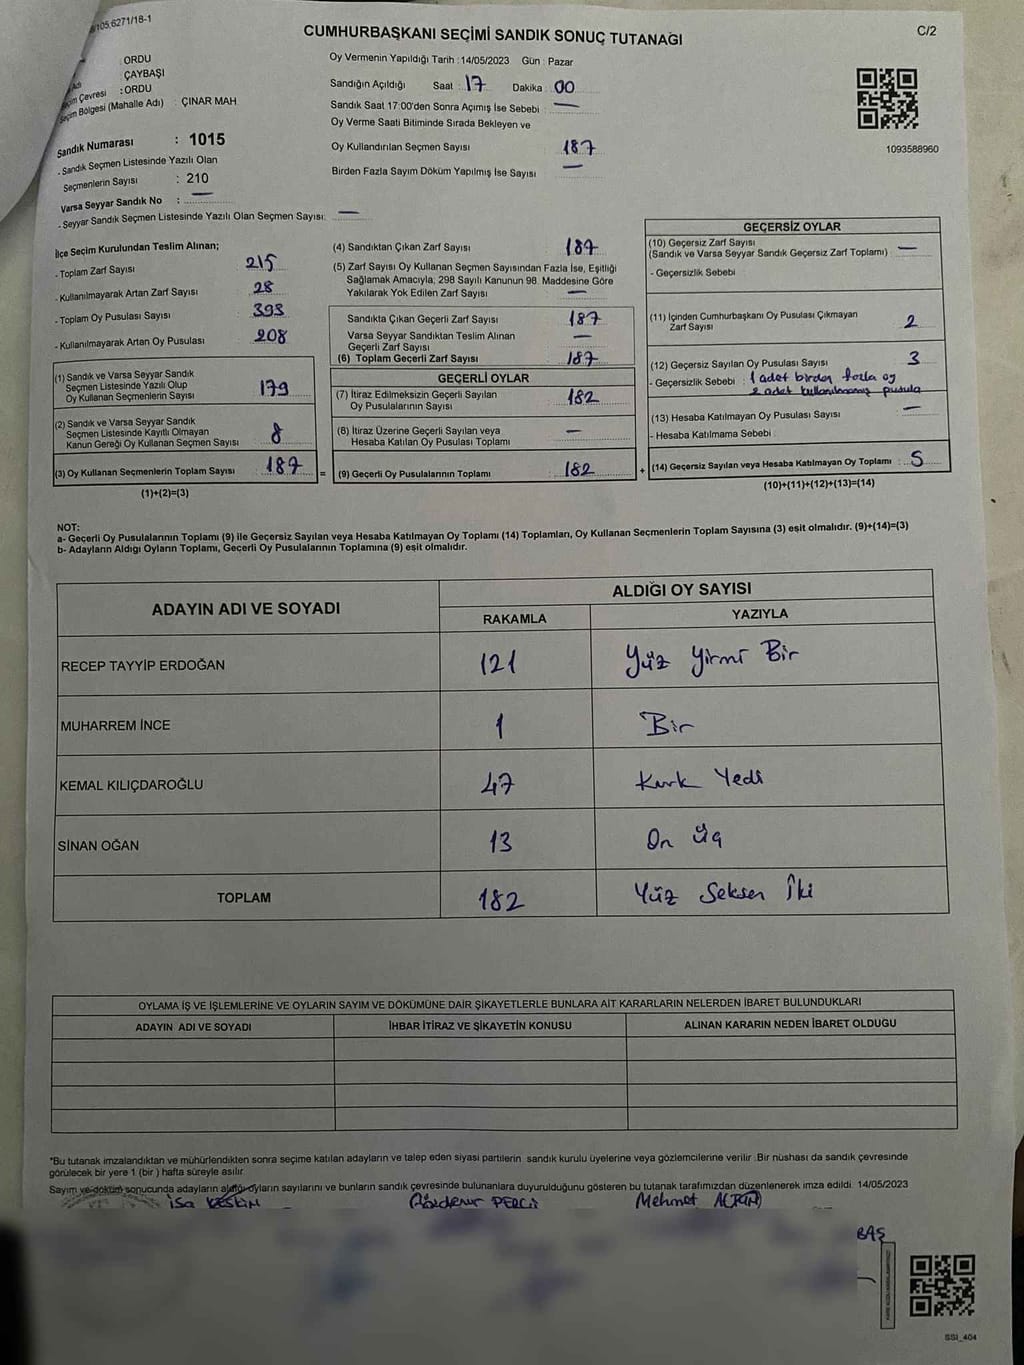 CUMHURBAŞKANI SEÇİMİ SANDIK SONUÇ TUTANAĞI
C/2
105.6271/18-1
: ORDU
: ÇAYBAŞI
Seçim Çevresi : ORDU
Seçim Bölgesi (Mahalle Adı) : ÇINAR MAH
Sandık Numarası : 1015
- Sandık Seçmen Listesinde Yazılı Olan
Seçmenlerin Sayısı : 210
Varsa Seyyar Sandık No : —
- Seyyar Sandık Seçmen Listesinde Yazılı Olan Seçmen Sayısı: —
Oy Vermenin Yapıldığı Tarih : 14/05/2023 Gün : Pazar
Sandığın Açıldığı Saat : 17 Dakika : 00
Sandık Saat 17:00'den Sonra Açımış İse Sebebi : —
Oy Verme Saati Bitiminde Sırada Bekleyen ve
Oy Kullandırılan Seçmen Sayısı 187
Birden Fazla Sayım Döküm Yapılmış İse Sayısı —
1093588960
İlçe Seçim Kurulundan Teslim Alınan;
- Toplam Zarf Sayısı 215
- Kullanılmayarak Artan Zarf Sayısı 28
- Toplam Oy Pusulası Sayısı 393
- Kullanılmayarak Artan Oy Pusulası 208
(1) Sandık ve Varsa Seyyar Sandık
Seçmen Listesinde Yazılı Olup
Oy Kullanan Seçmenlerin Sayısı 179
(2) Sandık ve Varsa Seyyar Sandık
Seçmen Listesinde Kayıtlı Olmayan
Kanun Gereği Oy Kullanan Seçmen Sayısı 8
(3) Oy Kullanan Seçmenlerin Toplam Sayısı 187 =
(1)+(2)=(3)
(4) Sandıktan Çıkan Zarf Sayısı 187
(5) Zarf Sayısı Oy Kullanan Seçmen Sayısından Fazla İse, Eşitliği
Sağlamak Amacıyla; 298 Sayılı Kanunun 98. Maddesine Göre
Yakılarak Yok Edilen Zarf Sayısı —
Sandıkta Çıkan Geçerli Zarf Sayısı 187
Varsa Seyyar Sandıktan Teslim Alınan
Geçerli Zarf Sayısı —
(6) Toplam Geçerli Zarf Sayısı 187
GEÇERLİ OYLAR
(7) İtiraz Edilmeksizin Geçerli Sayılan
Oy Pusulalarının Sayısı 182
(8) İtiraz Üzerine Geçerli Sayılan veya
Hesaba Katılan Oy Pusulası Toplamı —
(9) Geçerli Oy Pusulalarının Toplamı 182 +
GEÇERSİZ OYLAR
(10) Geçersiz Zarf Sayısı —
(Sandık ve Varsa Seyyar Sandık Geçersiz Zarf Toplamı)
- Geçersizlik Sebebi :
(11) İçinden Cumhurbaşkanı Oy Pusulası Çıkmayan
Zarf Sayısı 2
(12) Geçersiz Sayılan Oy Pusulası Sayısı 3
- Geçersizlik Sebebi : 1 adet birden fazla oy
2 adet kullanılmamış pusula
(13) Hesaba Katılmayan Oy Pusulası Sayısı —
- Hesaba Katılmama Sebebi :
(14) Geçersiz Sayılan veya Hesaba Katılmayan Oy Toplamı : 5
(10)+(11)+(12)+(13)=(14)
NOT:
a- Geçerli Oy Pusulalarının Toplamı (9) ile Geçersiz Sayılan veya Hesaba Katılmayan Oy Toplamı (14) Toplamları, Oy Kullanan Seçmenlerin Toplam Sayısına (3) eşit olmalıdır. (9)+(14)=(3)
b- Adayların Aldığı Oyların Toplamı, Geçerli Oy Pusulalarının Toplamına (9) eşit olmalıdır.
ADAYIN ADI VE SOYADI ALDIĞI OY SAYISI
RAKAMLA YAZIYLA
RECEP TAYYİP ERDOĞAN 121 Yüz Yirmi Bir
MUHARREM İNCE 1 Bir
KEMAL KILIÇDAROĞLU 47 Kırk Yedi
SİNAN OĞAN 13 On Üç
TOPLAM 182 Yüz Seksen İki
OYLAMA İŞ VE İŞLEMLERİNE VE OYLARIN SAYIM VE DÖKÜMÜNE DAİR ŞİKAYETLERLE BUNLARA AİT KARARLARIN NELERDEN İBARET BULUNDUKLARI
ADAYIN ADI VE SOYADI İHBAR İTİRAZ VE ŞİKAYETİN KONUSU ALINAN KARARIN NEDEN İBARET OLDUĞU
*Bu tutanak imzalandıktan ve mühürlendikten sonra seçime katılan adayların ve talep eden siyasi partilerin sandık kurulu üyelerine veya gözlemcilerine verilir. Bir nüshası da sandık çevresinde
görülecek bir yere 1 (bir ) hafta süreyle asılır.
Sayım ve döküm sonucunda adayların aldığı oyların sayılarını ve bunların sandık çevresinde bulunanlara duyurulduğunu gösteren bu tutanak tarafımızdan düzenlenerek imza edildi. 14/05/2023
İsa KESKİN Mehmet
BAŞ
SSI_404